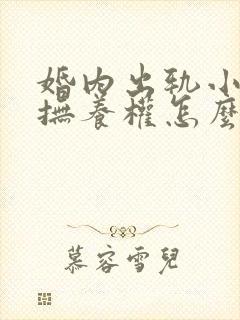 婚内出轨小
撫養權怎麼
慕容雪兒